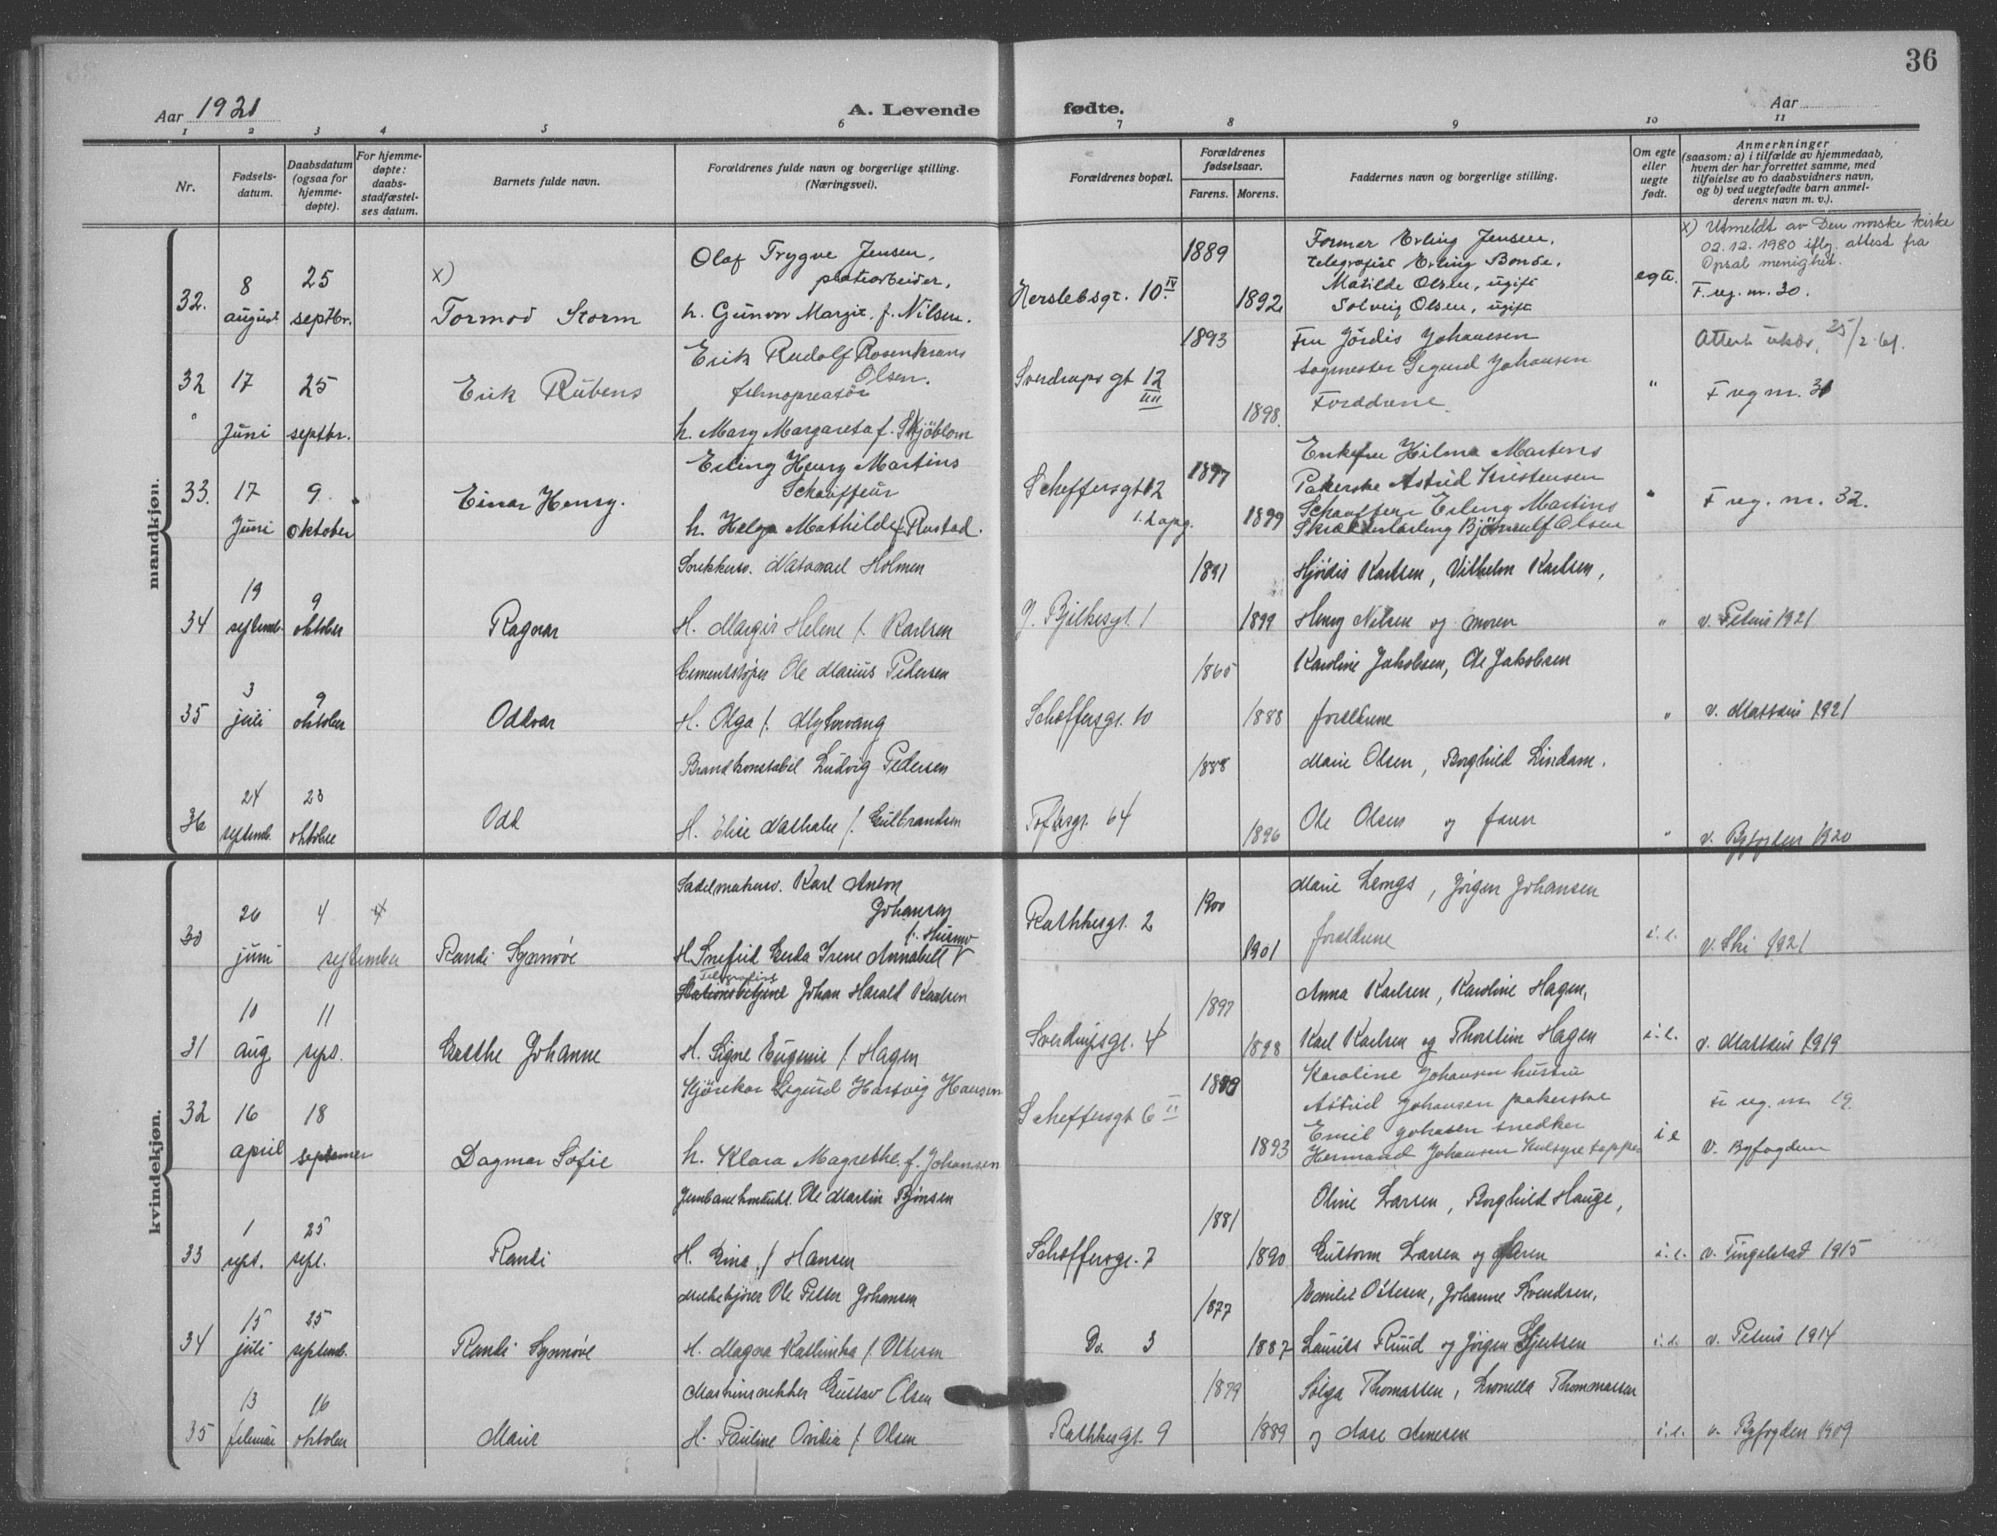 36
Aar 1921 A. Levende fødte. Aar
1 2 3 4 5 6 7 8 9 10 11
Nr. Fødsels-datum. Daabsdatum (ogsaa for hjemme-døpte). For hjemme-døpte: daabs-stadfæstel-ses datum. Barnets fulde navn. Forældrenes fulde navn og borgerlige stilling. (Næringsvei). Forældrenes bopæl. Forældrenes fødselsaar. Farens. Morens. Faddernes navn og borgerlige stilling. Om egte eller uegte født. Anmerkninger (saasom: a) i tilfælde av hjemmedaab, hvem der har forrettet samme, med tilføielse av to daabsvidners navn, og b) ved uegtefødte barn anmel-derens navn m. v.).
mandkjøn.
Olaf Trygve Jensen, 1889 Former Erling Jensen, x) Utmeldt av Den norske kirke
telegrafist Erling Bonde, 02.12.1980 iflg. attest fra
8 25 x) Matilde Olsen, ugift egte. Opsal menighet.
32. august septbr. Tormod Storm h. Gunvor Margit f. Nilsen. Herslebsgt. 10 IV 1892 Solveig Olsen, ugift F. reg. nr. 30.
Erik Rudolf Rosenkrans 1893 Fru Jördis Johansen Attest 25/2 61.
32 17 25 Erik Rubens Olsen. Sverdrups gt 12 Sigurd Johansen " F reg nr. 31
Juni septbr. h. Mary Margareta f. Skjöblom 1898. Forældrene
Erling Henry Martins 1897 Enkefru Hilma Martens
33. 17 9 Einar Henry. Schauffeur Scheffersgt 12 Astrid Kristensen " F reg. nr. 32.
Juni oktober h. Helga Mathilde f. Rustad. 1899 Schauffeur Erling Martins
Olsen
Holmen 1891 Hjördis Karlsen, Vilhelm Karlsen,
19 9
34 septemb. oktober Ragnar H. Margit Helene f. Karlsen J. Bjelkesgt. 1 1899 Henry Nilsen og moren " v. Petrus 1921
Cementstøper Ole Marius Pedersen 1865 Karoline Jakobsen, Ole Jakobsen
3 9
35 juli oktober Oddvar H. Olga f. Scheffersgt. 10 1888 forældrene " v. Mattæus 1921
Brandkonstabel Ludvig Pedersen 1888 Marie Olsen, Borghild Lindam.
24 23
36 septemb. oktober Odd H. Elise Nathalie f. Gulbrandsen Toftesgt. 64 1896 Ole Olsen og faren " v. Byfogden 1920
kvindekjøn.
Sadelmakersv. Karl Anton Johansen 1900 Marie , Jörgen Johansen
20 4 4
30 juni september Randi Synnøve H. Snefrid Gerda Irene Annabell Rathkesgt. 2 1901 forældrene i.e. v. Ski 1921
Telegrafist
Stationsbetjent Johan Harald Karlsen 1897 Anna Karlsen, Karoline Hagen,
10 11
31 aug sept. Grethe Johanne H. Signe Eugenie f. Hagen Sverdrupsgt. 4 1898 Karl Karlsen og Thorstein Hagen i.e. v. Mattæus 1919
Kjörekar Sigurd Hartvig Hansen Karoline Johansen hustru
32 16 18 Scheffersgt 6 II Astrid Johansen pakerske reg. nr 19.
april Dagmar Sofie h. Klara Magrethe f. Johansen 1893 Emil Johansen snedker i.e V. Byfogden
Hermand Johansen
Ole Martin Bjönsen 1881 Oline Larsen, Borghild Hauge,
1 25
33 sept. sept. Randi H. Gina f. Hansen Scheffersgt. 7 1890 Gustava Larsen og faren i.e. v. Tingelstad 1915
Melkekjører Ole Petter Johansen 1877 Emilie Ottesen, Johanne Svendsen,
15 25
34 juli septemb. Randi Synnöve H. Magna Kathinka f. Ottesen Do. 3 1887 Laurits Ruud og Jörgen i.e. v. Petrus 1914
Maskinsnekker Gustav Olsen 1879 Solga Thomassen, Leonella Thommassen
13 16
35 februar oktober Marie H. Pauline Ovidia f. Olsen Rathkesgt. 9 1889 og Aase Arnesen i.e. v. Byfogden 1909